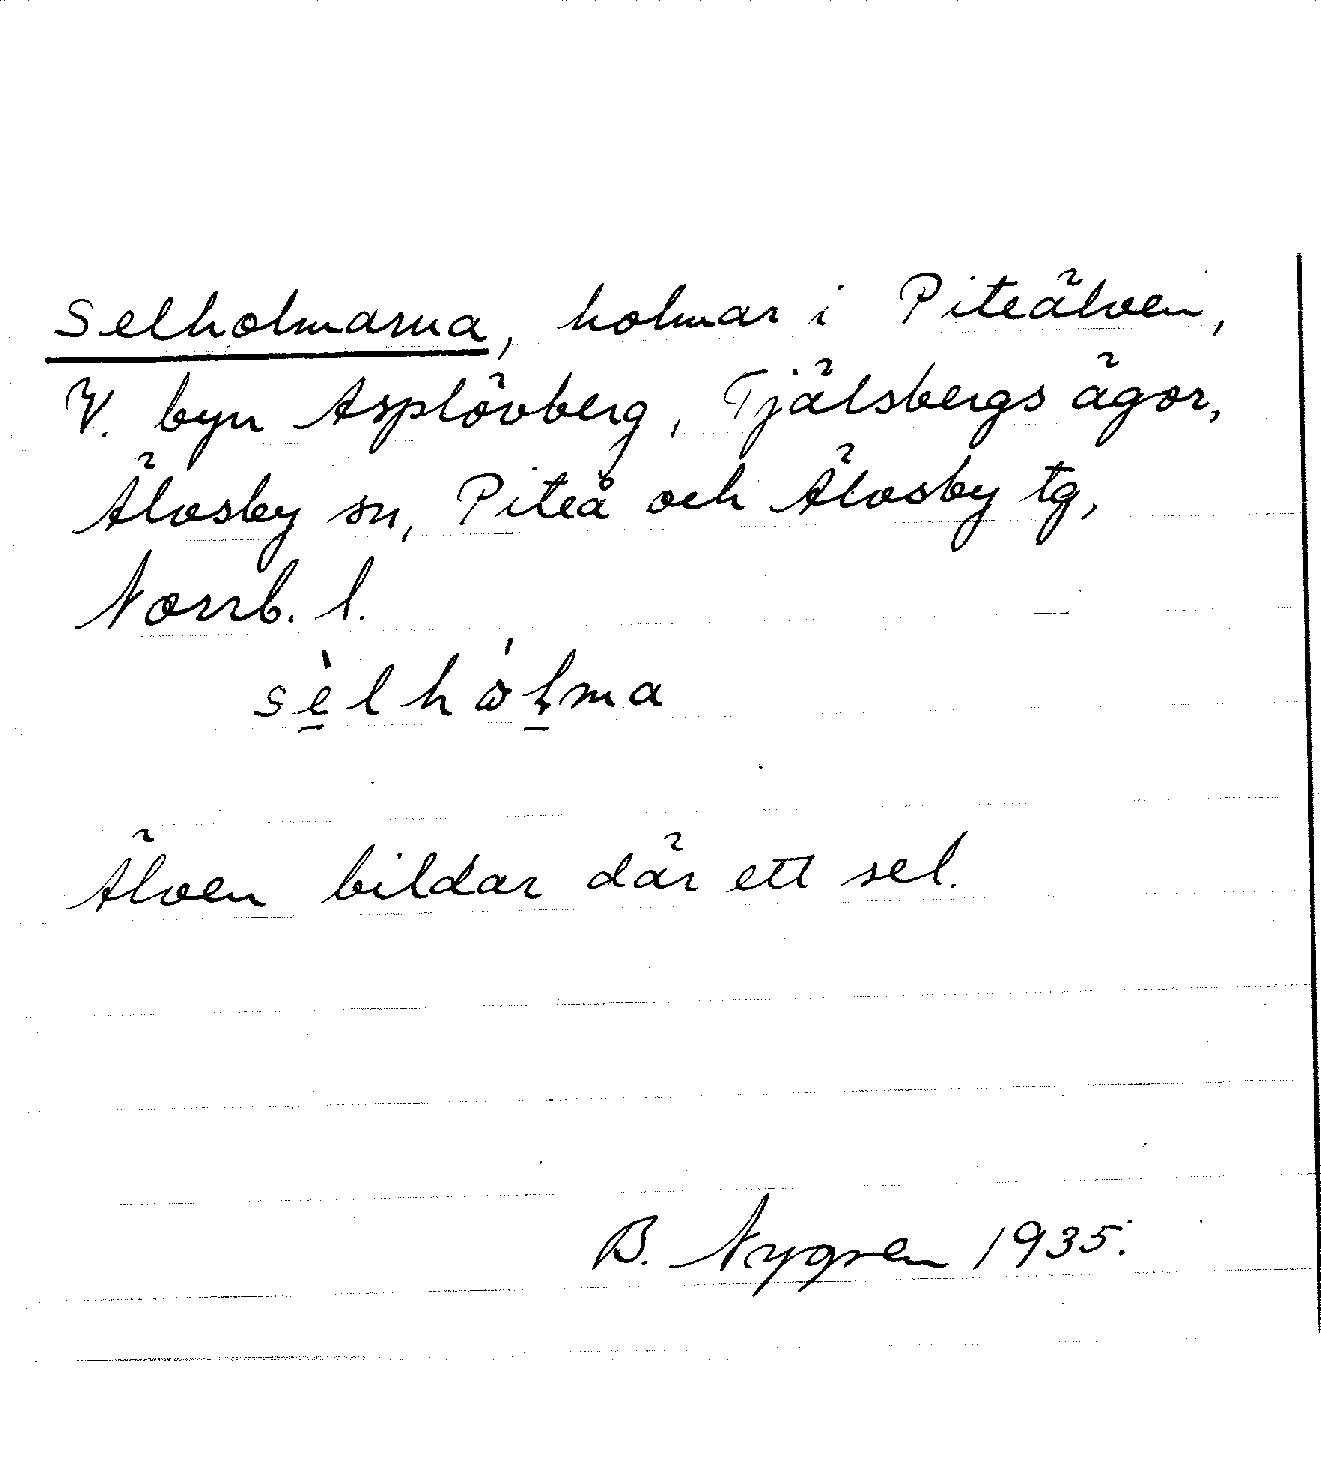 Selholmarna, holmar i Piteälven,
V. byn Asplövberg, Tjälsbergs ägor,
Älvsby sn, Piteå och Älvsby tg,
Norrb. l.
sèlhòlma
Älven bildar där ett sel.
B. Nygren 1935.